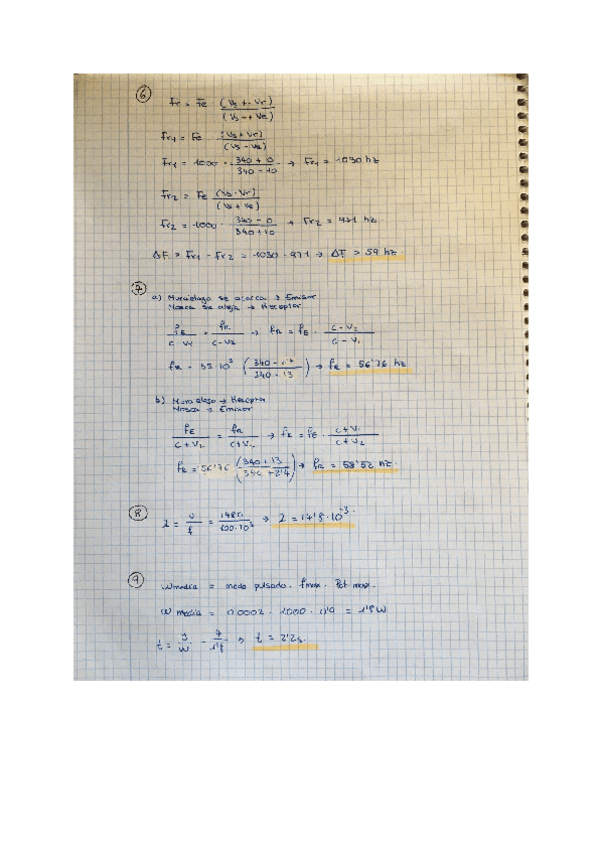 6
Fr = Fe (Vs +- Vr) / (Vs -+ Ve)
Fr1 = Fe (Vs + Vr) / (Vs - Ve)
Fr1 = 1000 · 340 + 0 / 340 - 10 → Fr1 = 1030 hz
Fr2 = Fe (Vs - Vr) / (Vs + Ve)
Fr2 = 1000 · 340 - 0 / 340 + 10 → Fr2 = 971 hz.
ΔF = Fr1 - Fr2 = 1030 - 971 → ΔF = 59 hz.
7
a) Murciélago se acerca → Emisor
Mosca se aleja → Receptor
fE / c - V1 = fR / c - V2 → fR = fE · c - V2 / c - V1
fR = 55·10³ · (340 - / 340 - 13) → fR = 56'76 hz
b) Murciélago → Receptor
Mosca → Emisor
fE / c + V2 = fR / c + V1 → fR = fE · c + V1 / c + V2
fR = 56'76 (340 + 13 / 340 + 2'4) → fR = 58'52 hz.
8
λ = v / f = 1480 / 100·10³ → λ = 14'8·10⁻³.
9
W media = pulsado · fmax · Pot max.
W media = 0,0002 · 1000 · = 1'8W
t = J / W → t = 2'2s.